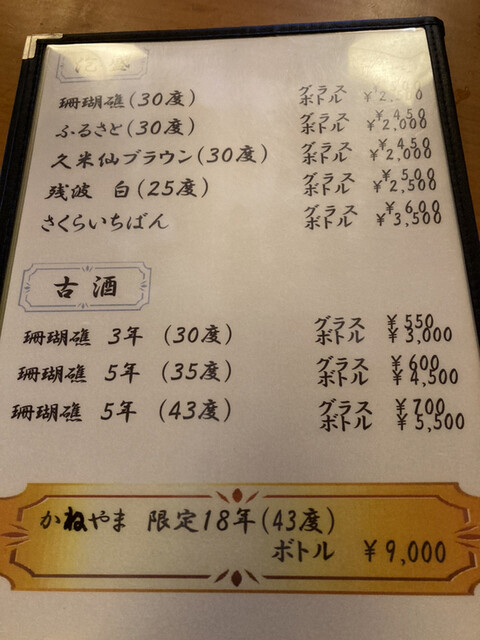 泡盛
珊瑚礁(30度) グラス
ボトル
ふるさと(30度) グラス ¥450
ボトル ¥2,000
久米仙ブラウン(30度) グラス ¥450
ボトル ¥2,000
残波 白(25度) グラス ¥500
ボトル ¥2,500
さくらいちばん グラス ¥600
ボトル ¥3,500
古酒
珊瑚礁 3年 (30度) グラス ¥550
ボトル ¥3,000
珊瑚礁 5年 (35度) グラス ¥600
ボトル ¥4,500
珊瑚礁 5年 (43度) グラス ¥700
ボトル ¥5,500
かねやま 限定18年(43度)
ボトル ¥9,000